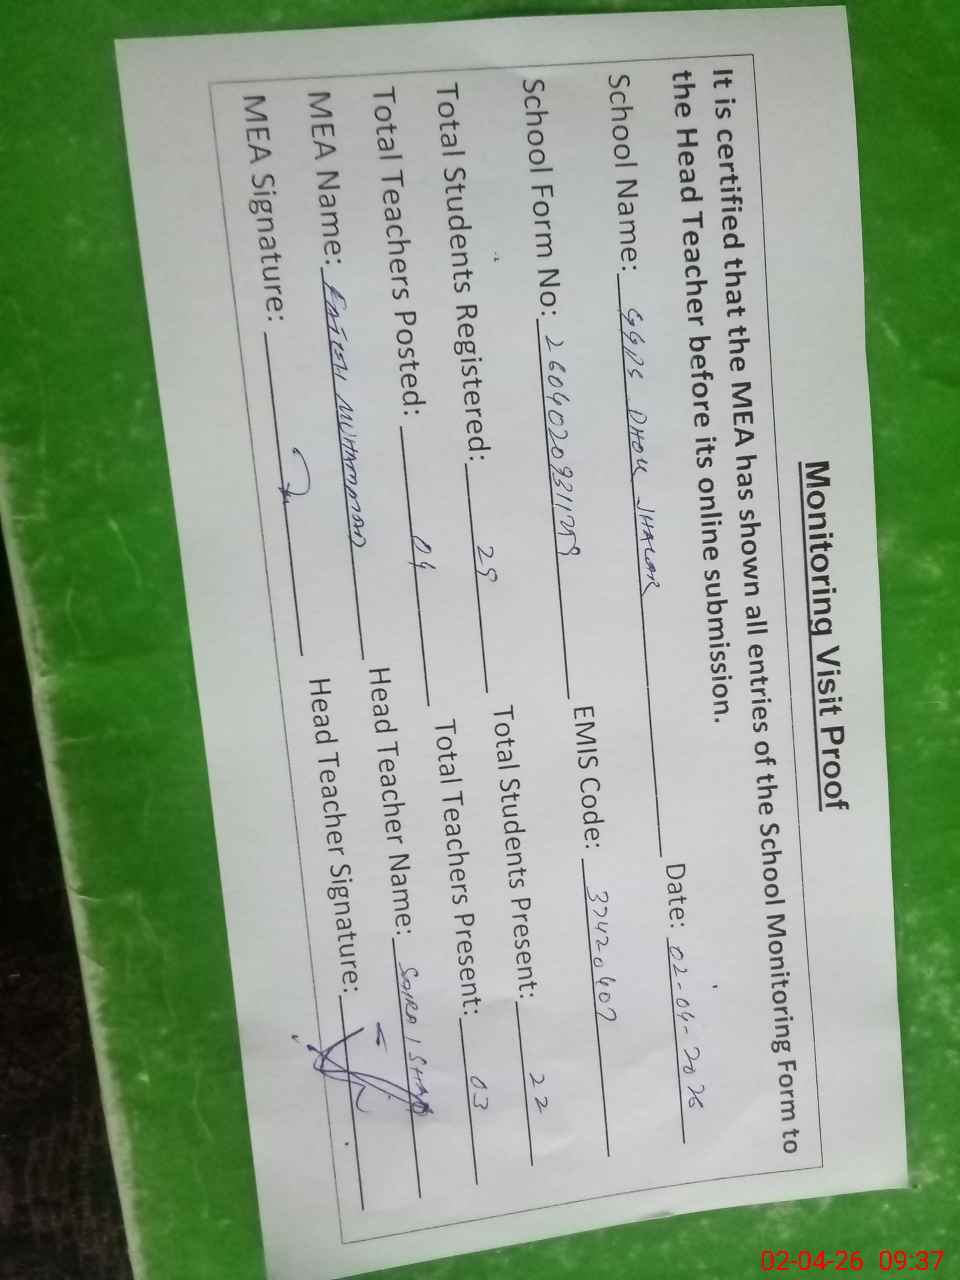 Monitoring Visit Proof
It is certified that the MEA has shown all entries of the School Monitoring Form to
the Head Teacher before its online submission.
School Name: GGPS DHOK JHALAR Date: 02-04-2026
School Form No: EMIS Code: 37420407
Total Students Registered: 29 Total Students Present: 22
Total Teachers Posted: 04 Total Teachers Present: 03
MEA Name: MUHAMMAD Head Teacher Name: SAIRA
MEA Signature: Head Teacher Signature:
02-04-26 09:37